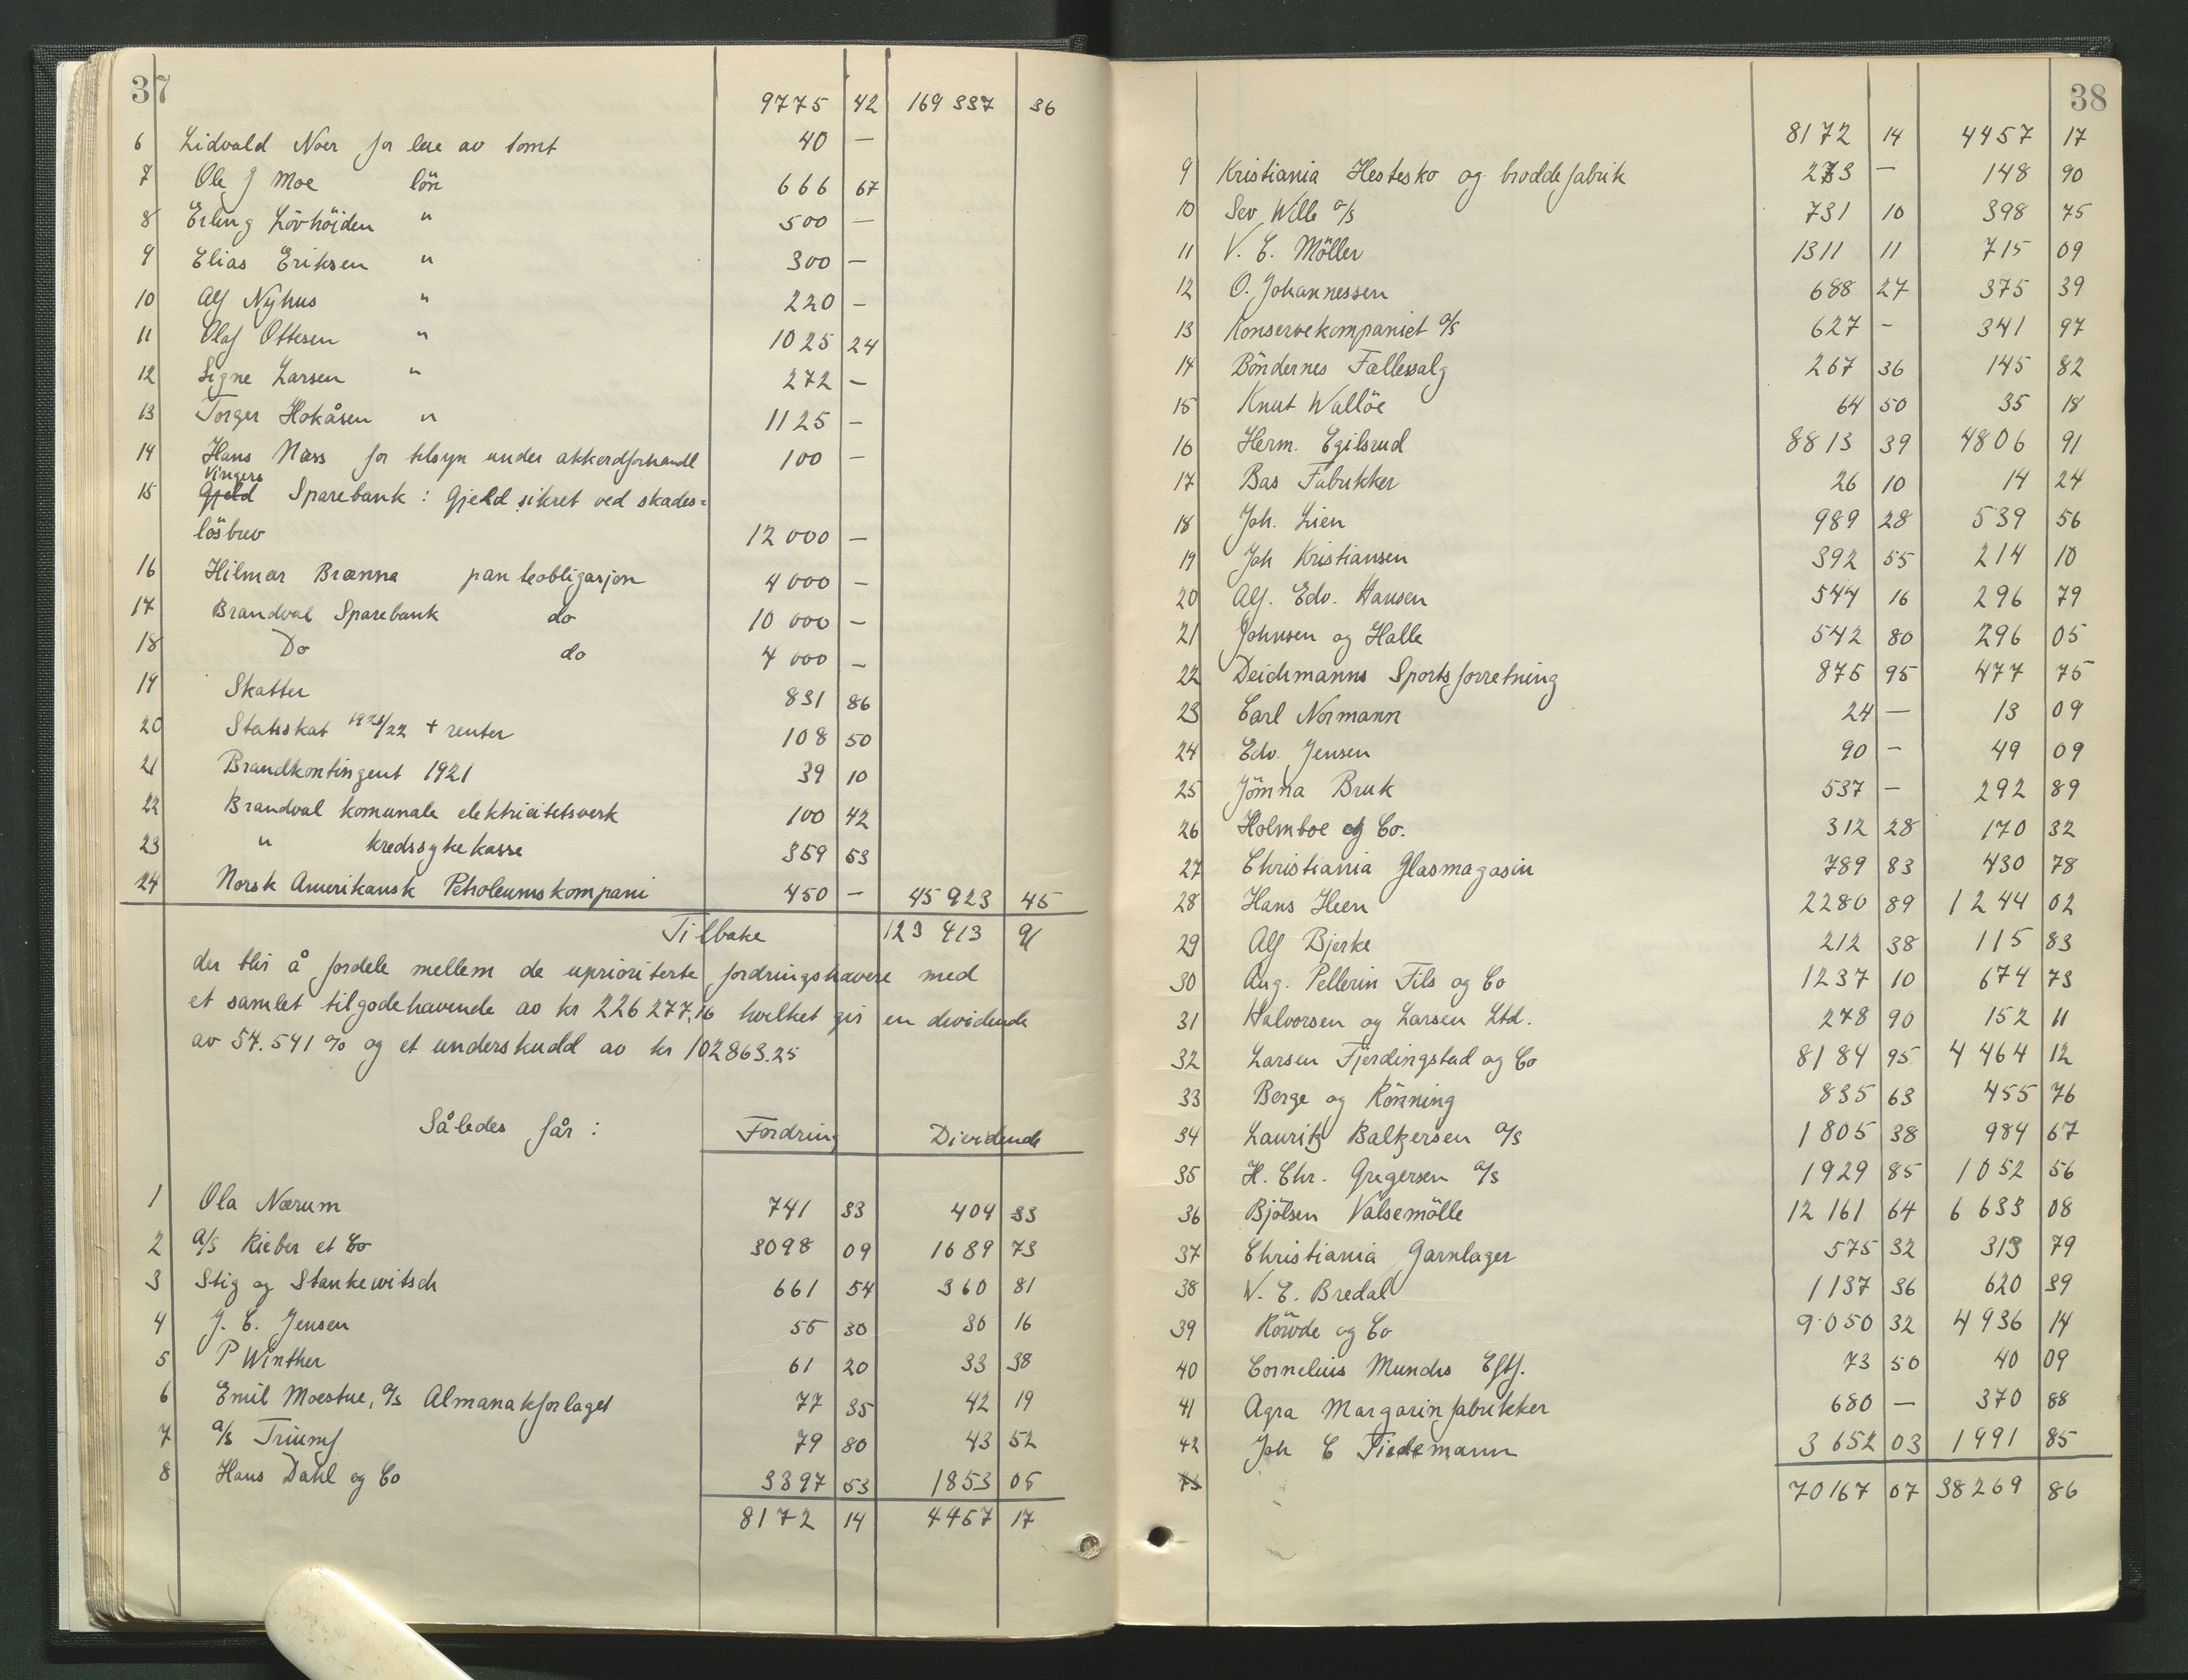 37
9775 42 169 337 36
6 Lidvald Noer for leie av tomt 40 —
7 Ole J Moe lön 666 67
8 Erling Lövhöiden " 500 —
9 Elias Eriksen " 300 —
10 Alf Nyhus " 220 —
11 Olaf Ottesen " 1025 24
12 Signe Larsen " 272 —
13 Torger Hokåsen " 1125 —
14 Hans Næss for tilsyn under akkordforhandl 100 —
Vingers
15 Gjeld Sparebank : Gjeld sikret ved skades=
lösbrev 12 000 —
16 Hilmar Brænna panteobligasjon 4 000 —
17 Brandval Sparebank do 10 000 —
18 Do do 4 000 —
19 Skatter 831 86
20 Statsskat 1921/22 + renter 108 50
21 Brandkontingent 1921 39 10
22 Brandval komunale elektricitetsverk 100 42
23 " kredssykekasse 359 53
24 Norsk Amerikansk Petroleumskompani 450 — 45 923 45
Tilbake 123 413 91
der blir å fordele mellem de uprioriterte fordringshavere med
et samlet tilgodehavende av kr 226 277,16 hvilket gir en dividende
av 54.541 % og et underskudd av kr 102863.25
Således får : Fordring Dividende
1 Ola Nærum 741 33 404 33
2 A/S Rieber et Co 3098 09 1689 73
3 Stig og Stankewitsch 661 54 360 81
4 J. C. Jensen 55 30 30 16
5 P Winther 61 20 33 38
6 Emil Moestue, A/S Almanakforlaget 77 35 42 19
7 A/S Triumf 79 80 43 52
8 Hans Dahl og Co 3397 53 1853 05
8172 14 4457 17
38
8172 14 4457 17
9 Kristiania Hestesko og broddefabrik 273 — 148 90
10 Sev. Wille A/S 731 10 398 75
11 V. C. Möller 1311 11 715 09
12 O. Johannessen 688 27 375 39
13 Konservekompaniet A/S 627 - 341 97
14 Böndernes Fællessalg 267 36 145 82
15 Knut Wallöe 64 50 35 18
16 Herm. Egilsrud 8813 39 4806 91
17 Bas Fabrikker 26 10 14 24
18 Joh. Lien 989 28 539 56
19 Joh Kristiansen 392 55 214 10
20 Alf. Edv. Hansen 544 16 296 79
21 Johnsen og Halle 542 80 296 05
22 Deichmanns Sportsforretning 875 95 477 75
23 Carl Normann 24 — 13 09
24 Edv. Jensen 90 - 49 09
25 Jömna Bruk 537 - 292 89
26 Holmboe og Co. 312 28 170 32
27 Christiania Glasmagasin 789 83 430 78
28 Hans Heen 2280 89 1244 02
29 Alf Bjerke 212 38 115 83
30 Aug. Pellerin Fils og Co 1237 10 674 73
31 Halvorsen og Larsen Ltd. 278 90 152 11
32 Larsen Fjerdingstad og Co 8184 95 4 464 12
33 Berge og Rönning 835 63 455 76
34 Lauritz Baltzersen A/S 1805 38 984 67
35 H. Chr. Gregersen A/S 1929 85 1052 56
36 Bjölsen Valsemölle 12 161 64 6 633 08
37 Christiania Garnlager 575 32 313 79
38 W. E. Bredal 1137 36 620 39
39 Röwde og Co 9.050 32 4 936 14
40 Cornelius Mundes Eftf. 73 50 40 09
41 Agra Margarinfabrikker 680 — 370 88
42 Joh C Tiedemann 3 652 03 1991 85
43 70 167 07 38269 86